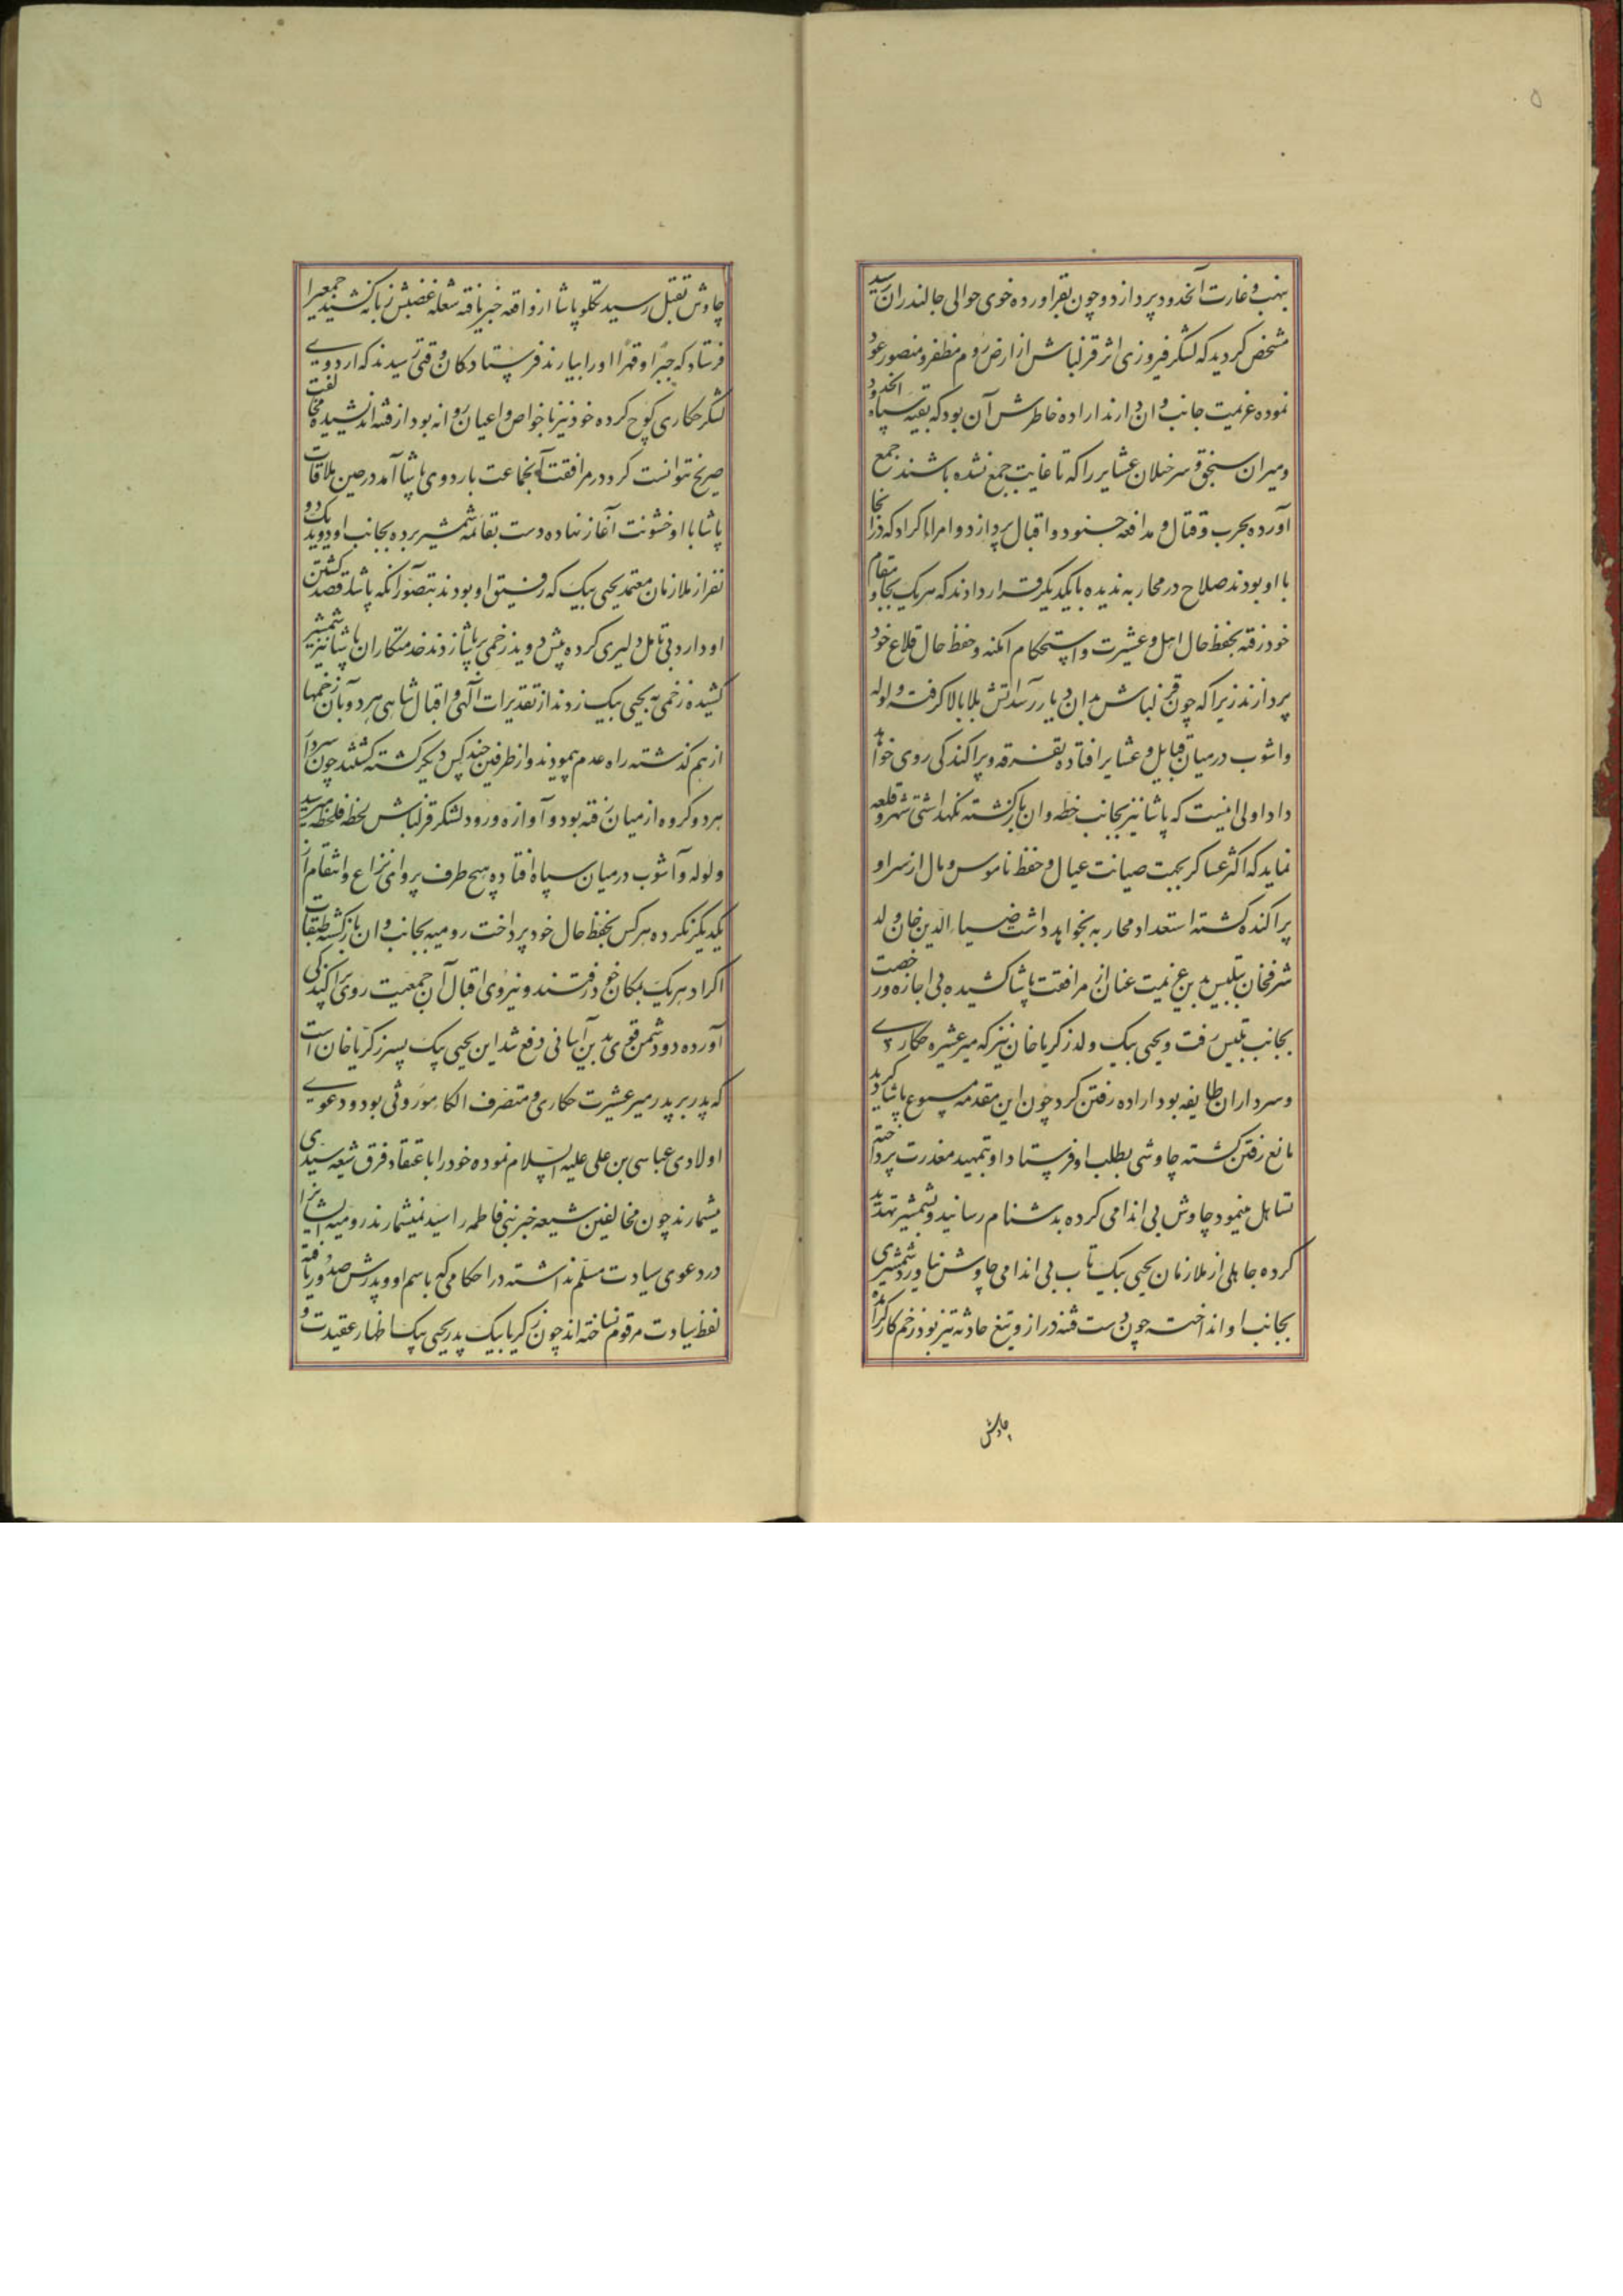 ۵
بنهب و غارت آنحدود پردازد و چون بقراورده خوی حوالی جالندران رسید
مشخص گردید که لشکر فیروزی اثر قزلباش از ارض روم مظفر و منصور عود
نموده عزیمت جانب وان دارند اراده خاطرش آن بود که بقیه سپاه آنحدود
و میران سنجق و سرخیلان عشایر را که تا غایت جمع نشده باشند جمع
آورده بحرب و قتال و مدافعه جنود و اقبال پردازد و امراء اکراد که در آنجا
با او بودند صلاح در محاربه ندیده با یکدیگر قرار دادند که هر یک بجا و مقام
خود رفته بحفظ حال اهل و عشیرت و استحکام امکنه و حفظ حال قلاع خود
پردازند زیرا که چون قزلباش بدان دیار رسد آتش بلا بالا گرفته و لوله
و آشوب در میان قبایل و عشایر افتاده تفرقه و پراکندگی روی خواهد
داد اولی انیست که پاشا نیز بجانب خطه وان بازگشته نگهداشتی شهر و قلعه
نماید که اکثر عساکر بجهت صیانت عیال و حفظ ناموس و مال از سر او
پراکنده گشته استعداد محاربه نخواهد داشت ضیاء الدین خان ولد
شرفخان بتلیس بدین عزیمت عنان از مرافقت پاشا کشیده بی اجازه و رخصت
بجانب تبلیس رفت و یحیی بیک ولد زکریا خان نیز که میر عشیره حکاری
و سرداران طایفه بود اراده رفتن کرد چون این مقدمه مسموع پاشا گردید
مانع رفتن گشته چاوشی بطلب او فرستاد او بتمهید معذرت پرداخته
تساهل مینمود چاوش بی اندامی کرده بدشنام رسانید و بشمشیر تهدید
کرده جاهلی از ملازمان یحیی بیک تاب بی اندامی چاوش نیاورد شمشیری
بجانب او انداخت چون دست فتنه دراز و تیغ حادثه تیز بود زخم کارگر آمده
چاوش
چاوش بقتل رسید تکلو پاشا از واقعه خبر یافته شعله غضبش زبانه کشید جمعیرا
فرستاد که جبرا و قهرا او را بیارند فرستادکان وقتی رسیدند که اردوی
لشکر حکاری کوچ کرده خود نیز با خواص و اعیان روانه بود از فتنه اندیشیده مخالفت
صریح نتوانست کرد در مرافقت آنجماعت باردوی پاشا آمد در حین ملاقات
پاشا با او خشونت آغاز نهاده دست بقائمه شمشیر برده بجانب او دوید یک دو
نفر از ملازمان معتمد یحیی بیک که رفیق او بودند بتصور آنکه پاشا قصد کشتن
او دارد بی تامل دلیری کرده پیش دویدند زخمی بر پاشا زدند خدمتکاران پاشا نیز شمشیر
کشیده زخمی به یحیی بیک زدند از تقدیرات الهی و اقبال شاهی هر دو بآن زخمها
از هم گذشته راه عدم پمودند و از طرفین چند کس دیگر کشته گشتند چون سردار
هر دو گروه از میان رفته بود و آوازه ورود لشکر قزلباش لحظه فلحظه میرسید
ولوله و آشوب در میان سپاه افتاده هیچ طرف پروای نزاع و انتقام از
یکدیگر نکرده هر کس بحفظ حال خود پرداخت رومیه بجانب وان بازگشته طبقات
اکراد هر یک بمکان خود رفتند و نیروی اقبال آن جمعیت روی پراکندگی
آورده دو دشمن قوی بدین آسانی دفع شد این یحیی بیک پسر زکریا خان است
که پدر بر پدر میر عشیرت حکاری و متصرف الکا موروثی بود و دعوی
اولادی عباسی بن علی علیه السلام نموده خود را باعتقاد فرق شیعه سیدی
میشمارند چون مخالفین شیعه خیر بنی فاطمه را سید نمیشمارند رومیه ایشانرا
در دعوی سیادت مسلم نداشته در احکامی که باسم او و پدرش صدور یافته
لفظ سیادت مرقوم نساخته اند چون زکریا بیک پدر یحیی بیک اظهار عقیدت و